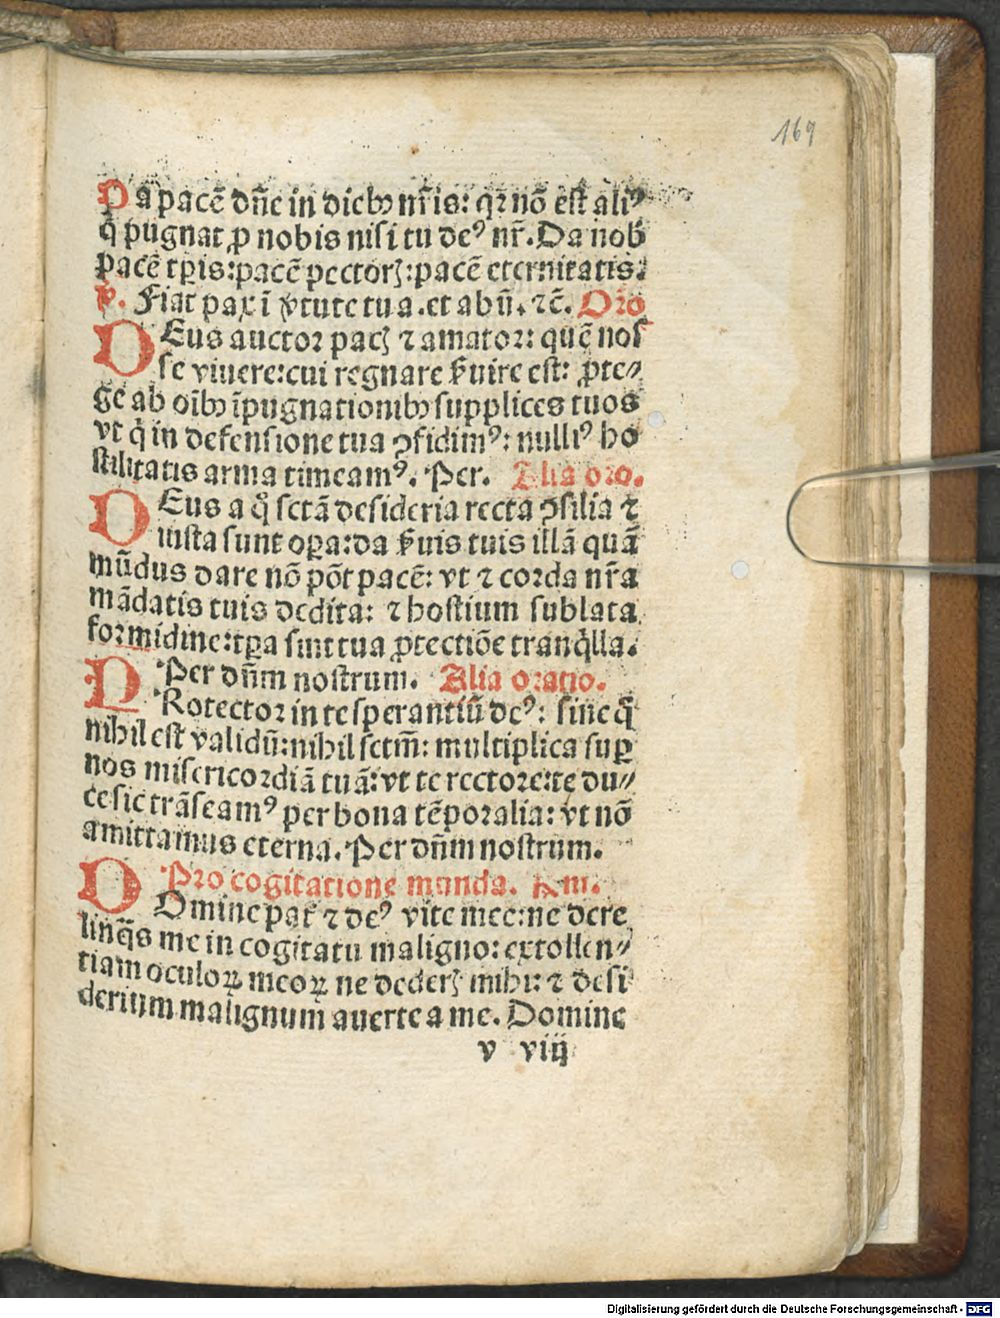 169
Da pacē dn̄e in dieb⁹ nr̄is: qꝛ nō est ali⁹
q̇ pugnat ꝓ nobis nisi tu de⁹ nr̄. Da nob̄
pacē tꝑis: pacē pectoꝝ: pacē eternitatis.
℣. Fiat pax ī v̓tute tua. et abū. ⁊ cē. Oꝛo
DEus auctoꝛ pacꝭ ⁊ amatoꝛ: quē nos
se viuere: cui regnare s̓uire est: ꝓte⸗
ge ab oīb⁹ īpugnationib⁹ supplices tuos
vt q̇ in defensione tua ꝯfidim⁹: nulli⁹ ho
stilitatis arma timeam⁹. Per. Alia oꝛo.
DEus a q̊ sctā desideria recta ꝯsilia ⁊
iusta sunt oꝑa: da s̓uis tuis illā quā
mūdus dare nō pōt pacē: vt ⁊ coꝛda nr̄a
mādatis tuis dedita: ⁊ hostium sublata
foꝛmidine: tꝑa sint tua ꝓtectiōe tranq̇lla.
Per dn̄m nostrum. Alia oꝛatio.
PRotectoꝛ in te sperantiū de⁹: sine q̊
nihil est validū: nihil sctm̄: multiplica suꝑ
nos misericoꝛdiā tuā: vt te rectoꝛe: te du⸗
ce sic trāseam⁹ per bona tēpoꝛalia: vt nō
amittamus eterna. Per dn̄m nostrum.
Pꝛo cogitatione munda.
DOmine pat̄ ⁊ de⁹ vite mee: ne dere
linq̄s me in cogitatu maligno: extollen⸗
tiam oculoꝝ meoꝝ ne dederꝭ mihi: ⁊ desi
derium malignum auerte a me. Domine
v viij
Digitalisierung gefördert durch die Deutsche Forschungsgemeinschaft - DFG